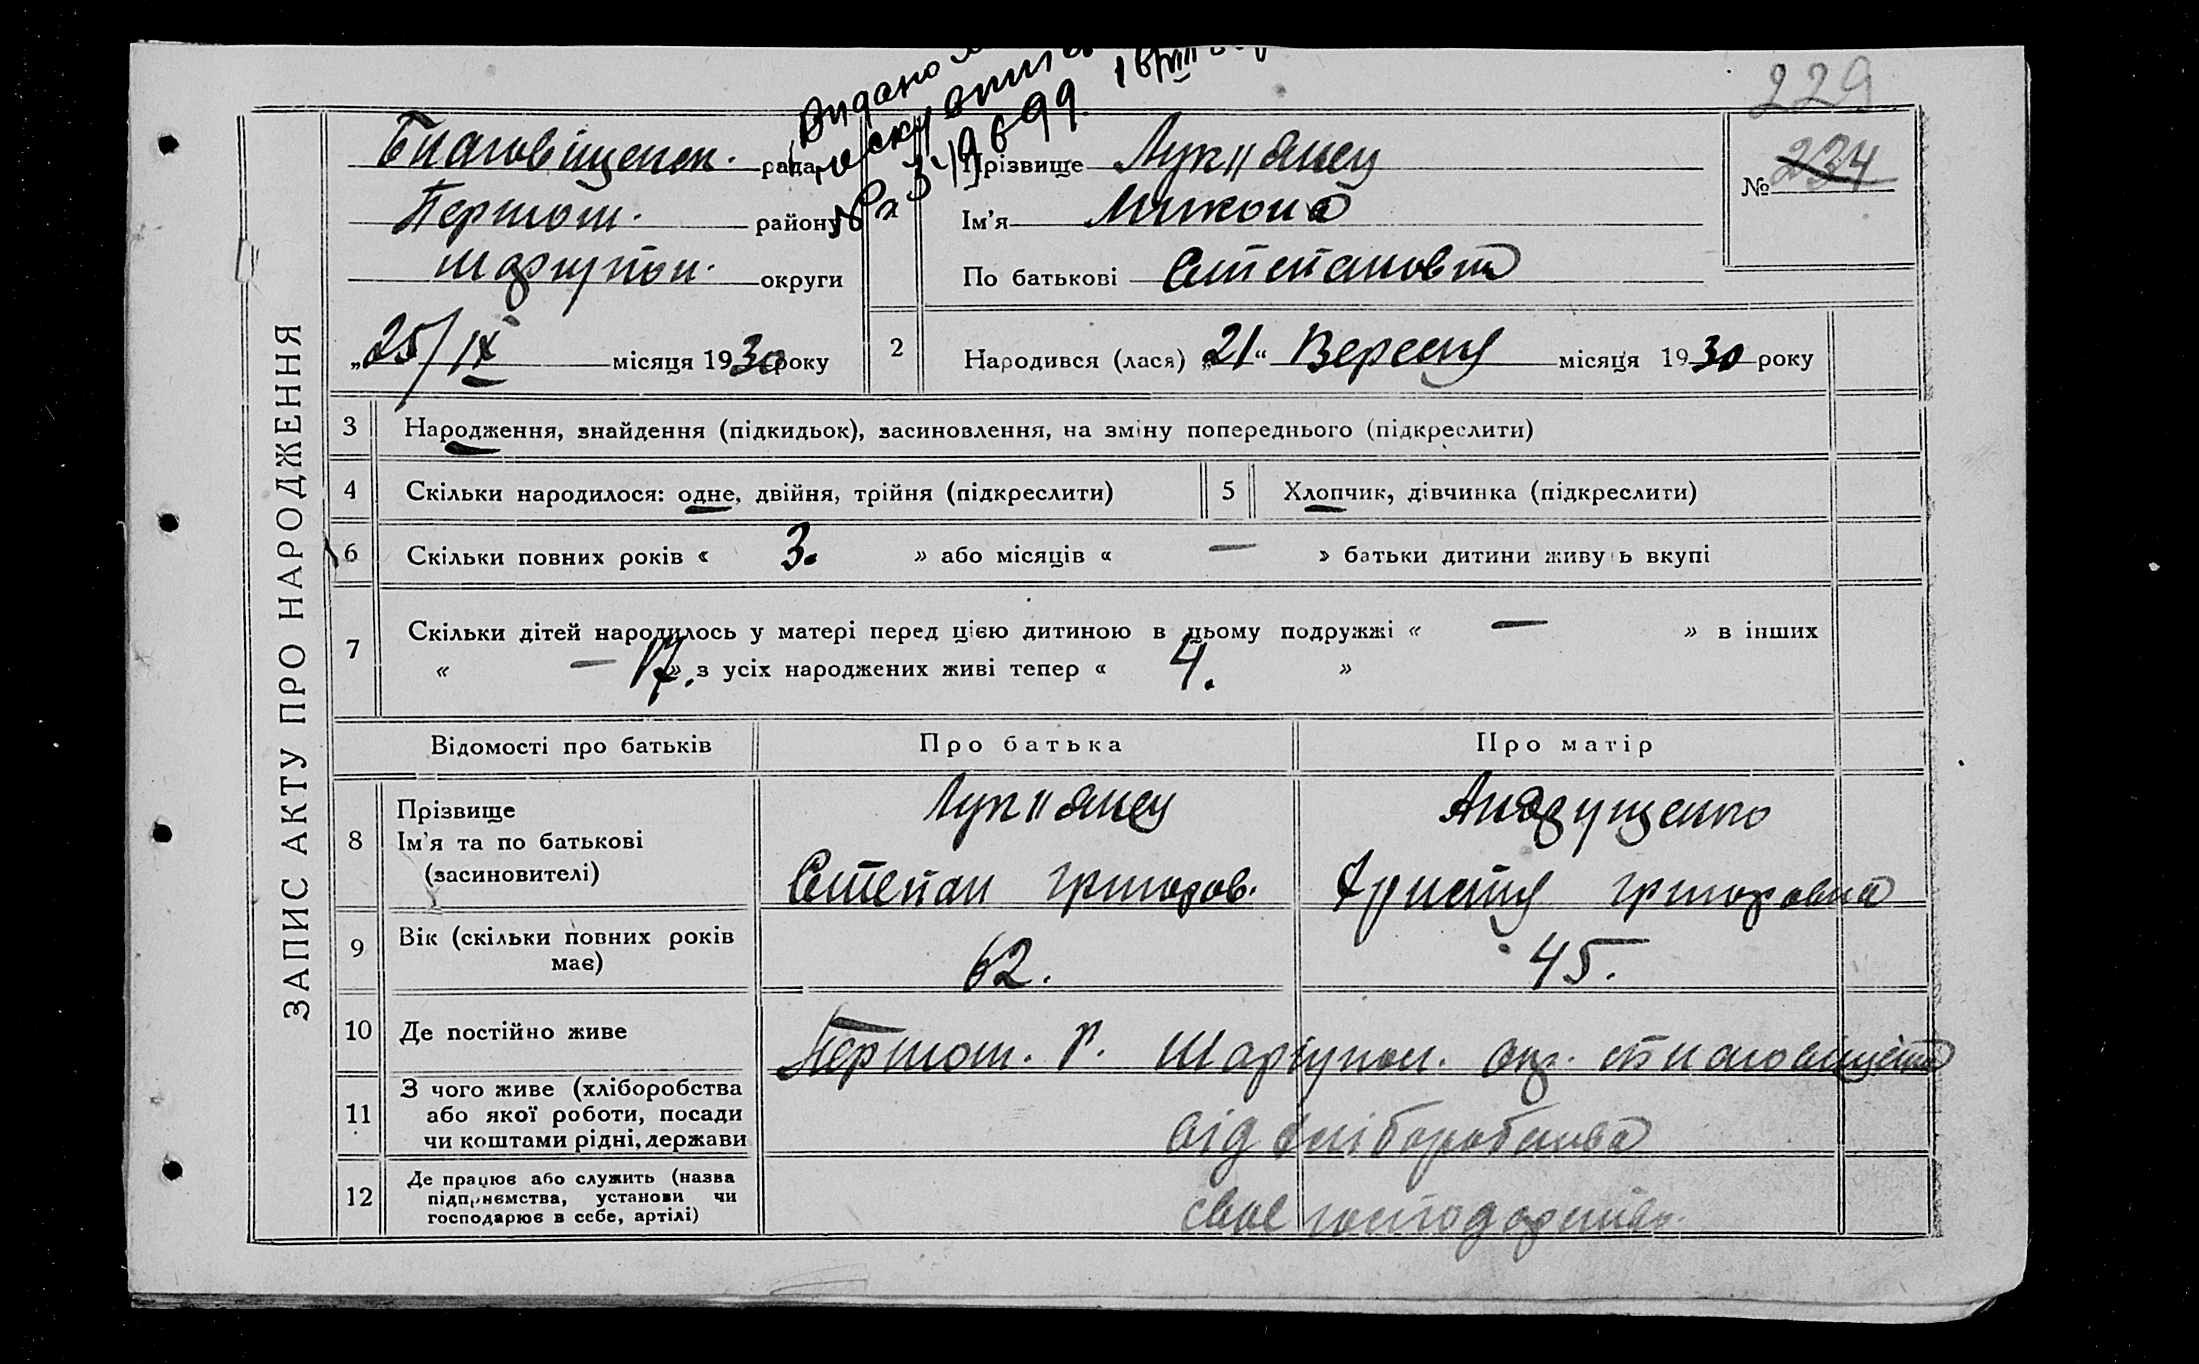 229
ЗАПИС АКТУ ПРО НАРОДЖЕННЯ
Видано
№ 349699
Благовіщенск. рада
Першот. району
Маріупол. округи
„25/IX місяця 1930 року
Прізвище Лук"янец
Ім'я Микола
По батькові Степанович
№ 234
2 Народився (лася) „21“ Вересня місяця 1930 року
3 Народження, знайдення (підкидьок), засиновлення, на зміну попереднього (підкреслити)
4 Скільки народилося: одне, двійня, трійня (підкреслити) 5 Хлопчик, дівчинка (підкреслити)
6 Скільки повних років « 3. » або місяців « — » батьки дитини живу ь вкупі
7 Скільки дітей народилось у матері перед цією дитиною в цьому подружжі « — » в інших
« — 17. » з усіх народжених живі тепер « 4. »
Відомості про батьків Про батька Про матір
8 Прізвище Лук"янец Андрущенко
Ім'я та по батькові
(засиновителі) Степан Григоров. Христя Григоровна
9 Вік (скільки повних років має) 62. 45.
10 Де постійно живе Першот. р. Маріупол. окр. Благовіщенка
11 З чого живе (хліборобства
або якої роботи, посади
чи коштами рідні, держави від хліборобства
12 Де працює або служить (назва
підприємства, установи чи
господарює в себе, артілі) своє господарство.